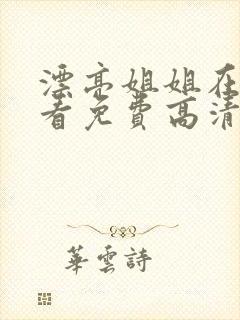 漂亮姐姐在
看免费高清
華雲詩